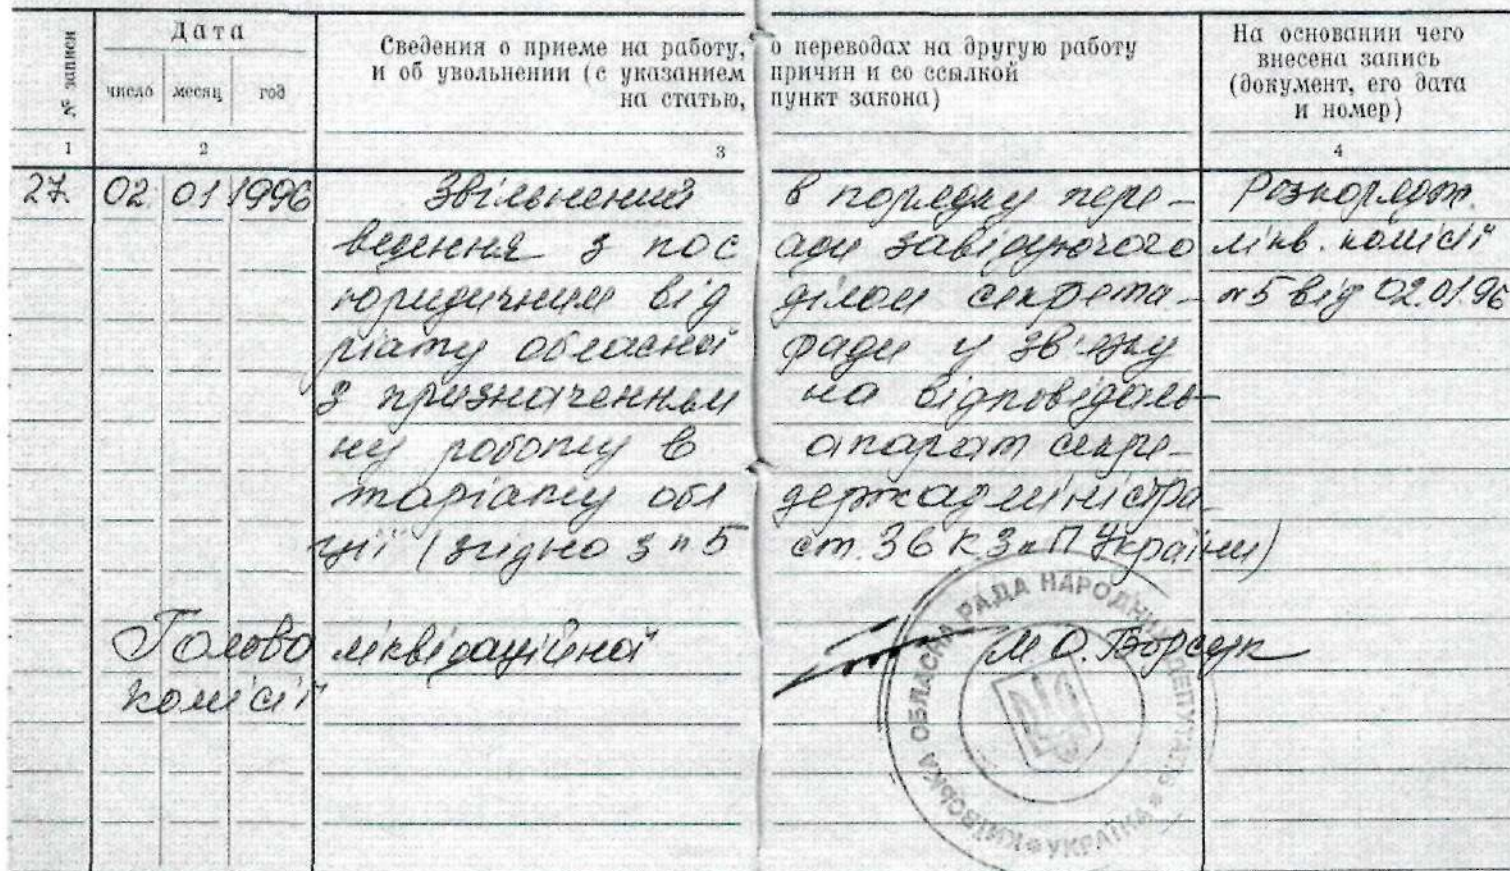 № записи
Дата
число месяц год
Сведения о приеме на работу, о переводах на другую работу
и об увольнении (с указанием причин и со ссылкой
на статью, пункт закона)
На основании чего
внесена запись
(документ, его дата
и номер)
1 2 3 4
27. 02 01 1996 Звільнений в порядку пере- Розпорядж.
ведення з посади завідуючого лікв. комісії
юридичним відділом секрета- №5 від 02.01.96
ріату обласної ради у зв'язку
з призначенням на відповідаль-
ну роботу в апарат секре-
таріату облдержадміністра-
ції (згідно з п 5 ст. 36 КЗпП України)
Голова ліквідаційної М.О.
комісії
КИЇВСЬКА ОБЛАСНА РАДА НАРОДНИХ ДЕПУТАТІВ * УКРАЇНА *